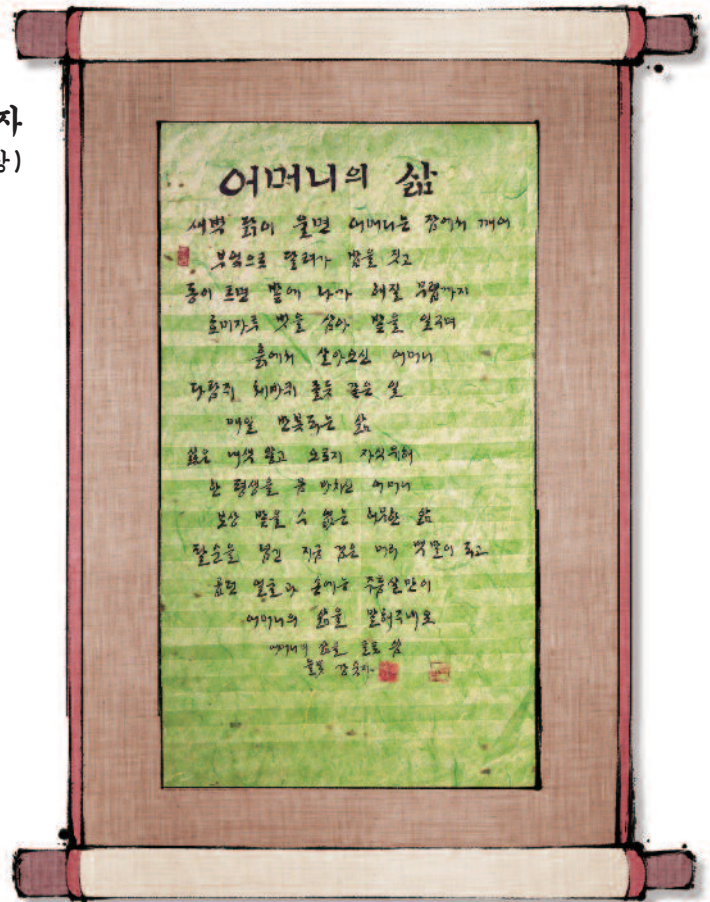 자
상)
어머니의 삶
새벽 닭이 울면 어머니는 잠에서 깨어
부엌으로 달려가 밥을 짓고
동이 트면 밭에 나가 해질 무렵까지
호미자루 벗을 삼아 밭을 일구며
흙에서 살아오신 어머니
다람쥐 체바퀴 돌듯 같은 일
매일 반복되는 삶
싫은 내색 않고 오로지 자식위해
한 평생을 몸 바치신 어머니
보상 받을 수 없는 허무한 삶
팔순을 넘긴 지금 검은 머리 백발이 되고
곱던 얼굴과 손에는 주름살만이
어머니의 삶을 말해주네요
어머니의 삶을